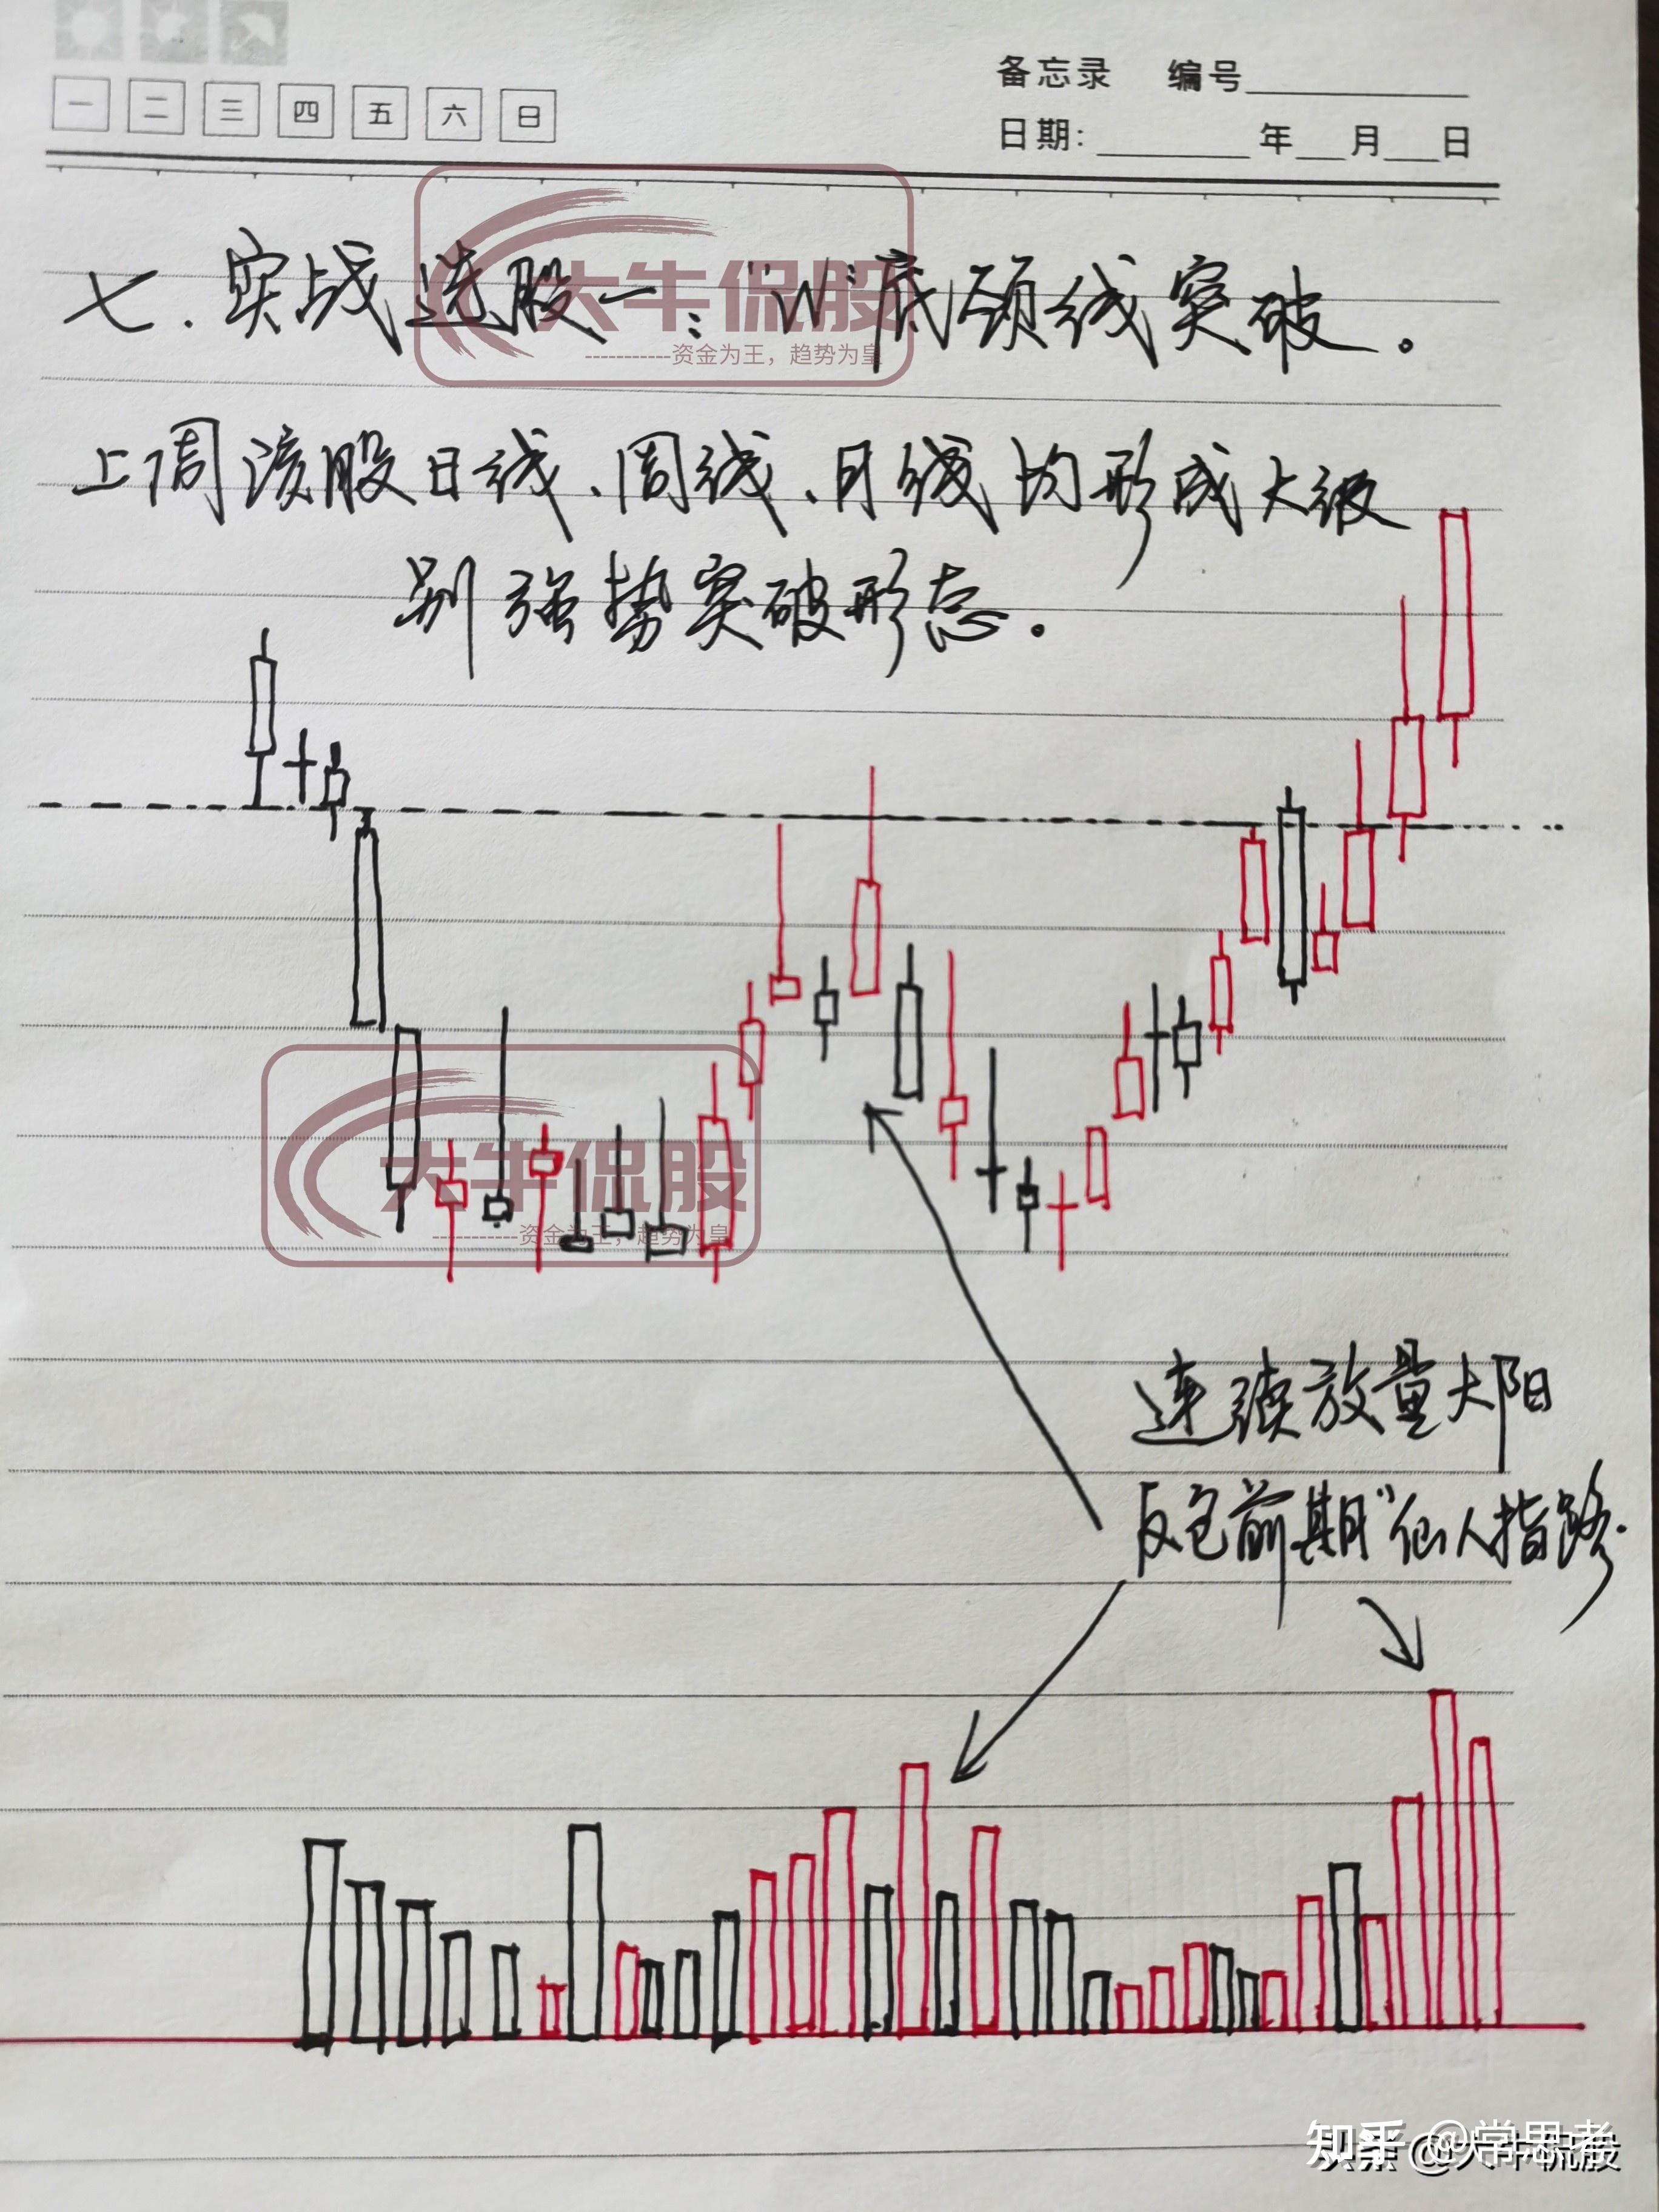 一 二 三 四 五 六 日
备忘录 编号
日期: 年 月 日
七.实战选股一:"W"底颈线突破。
大牛侃股
-----------资金为王，趋势为皇
上周该股日线、周线、月线均形成大级
别强势突破形态。
大牛侃股
-----------资金为王，趋势为皇
连续放量大阳
反包前期"仙人指路.
知乎 @学思者
头条 @大牛侃股